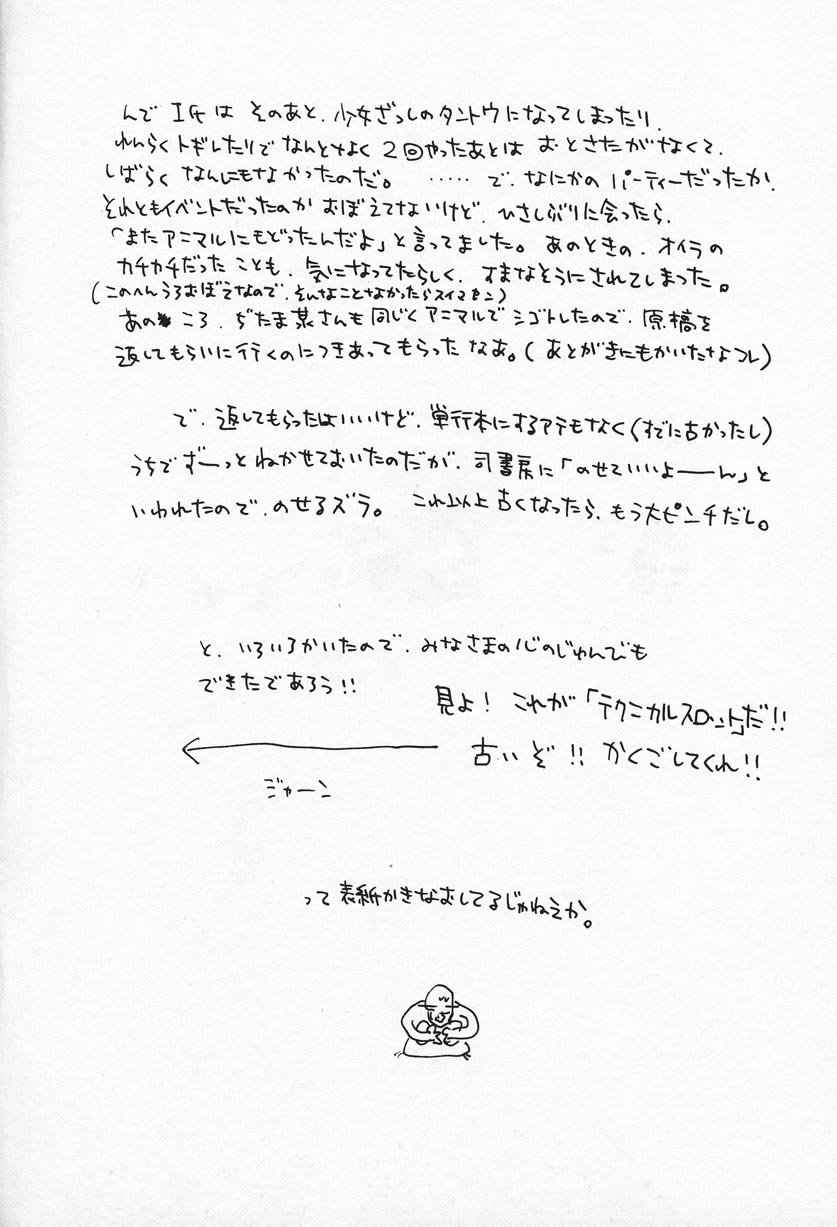 んで I氏は そのあと、少女ざっしのタントウになってしまったり、
れんらくトギレたりで なんとなく 2回やったあとは おとさたがなくて、
しばらく なんにもなかったのだ。 ‥‥‥ で、なにかの パーティーだったか、
それともイベントだったのか おぼえてないけど、ひさしぶりに会ったら、
「またアニマルにもどったんだよ」と言ってました。 あのときの、オイラの
カチカチだったことも、気になってたらしく、すまなそうにされてしまった。
(このへんうろおぼえなので、そんなことなかったらスイマセン)
あの ころ、ぢたま某さんも同じくアニマルでシゴトしたので、原稿を
返してもらいに行くのにつきあってもらったなあ。(あとがきにもかいたなコレ)
で、返してもらったはいいけど、単行本にするアテもなく(すでに古かったし)
うちで ずーっと ねかせておいたのだが、司書房に「のせていいよーーん」と
いわれたので、のせるズラ。 これ以上古くなったら、もう大ピンチだし。
と、いろいろかいたので、みなさまの心のじゅんびも
できたであろう!!
見よ! これが「テクニカルスロット」だ!!
古いぞ!! かくごしてくれ!!
ジャーン
って 表紙かきなおしてるじゃねえか。